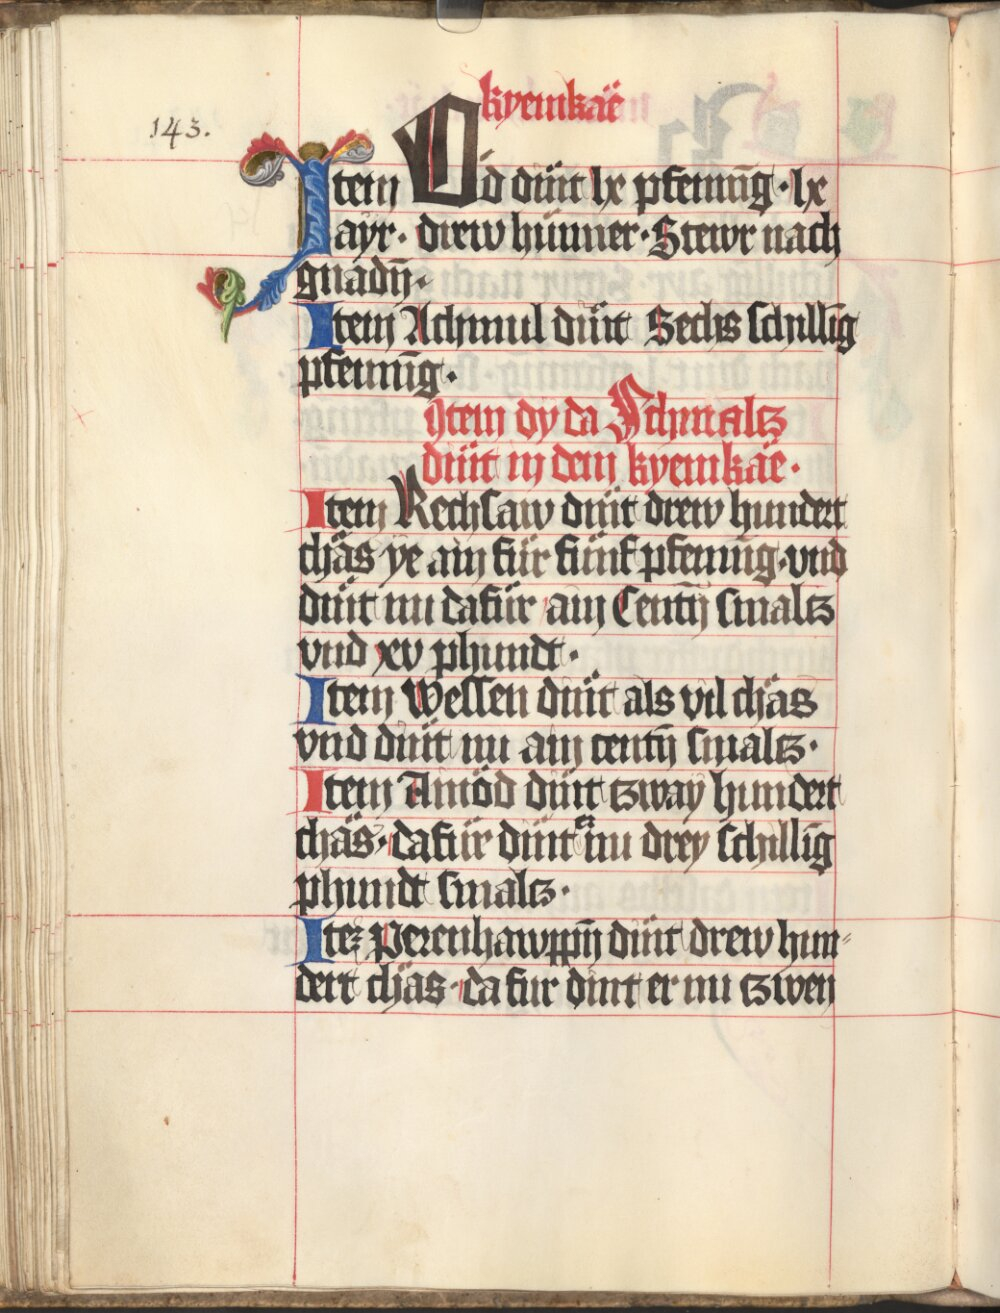 kyemkäe
143.
Item Öd dint lx pfenning · lx
ayr · drew hünner · Stewr nach
gnadn̄ ·
Item Achmul dint Sechs schilling
pfenning ·
Item dy da Schmaltz
dint in dem kyemkäe ·
Item Rechsaw dint drew hundert
chäs ye ain für fünf pfenning · vnd
dint nu dafür ain Centn̄ smaltz
vnd xv phundt ·
Item Wessen dint als vil chäs
vnd dint nu ain centn̄ smaltz ·
Item Amöd dint tzway hundert
chäs · dafür dint er nu drey schilling
phundt smaltz ·
Itez Perenhawppn̄ dint drew hun⸗
dert chäs · dafur dint er nu tzwen